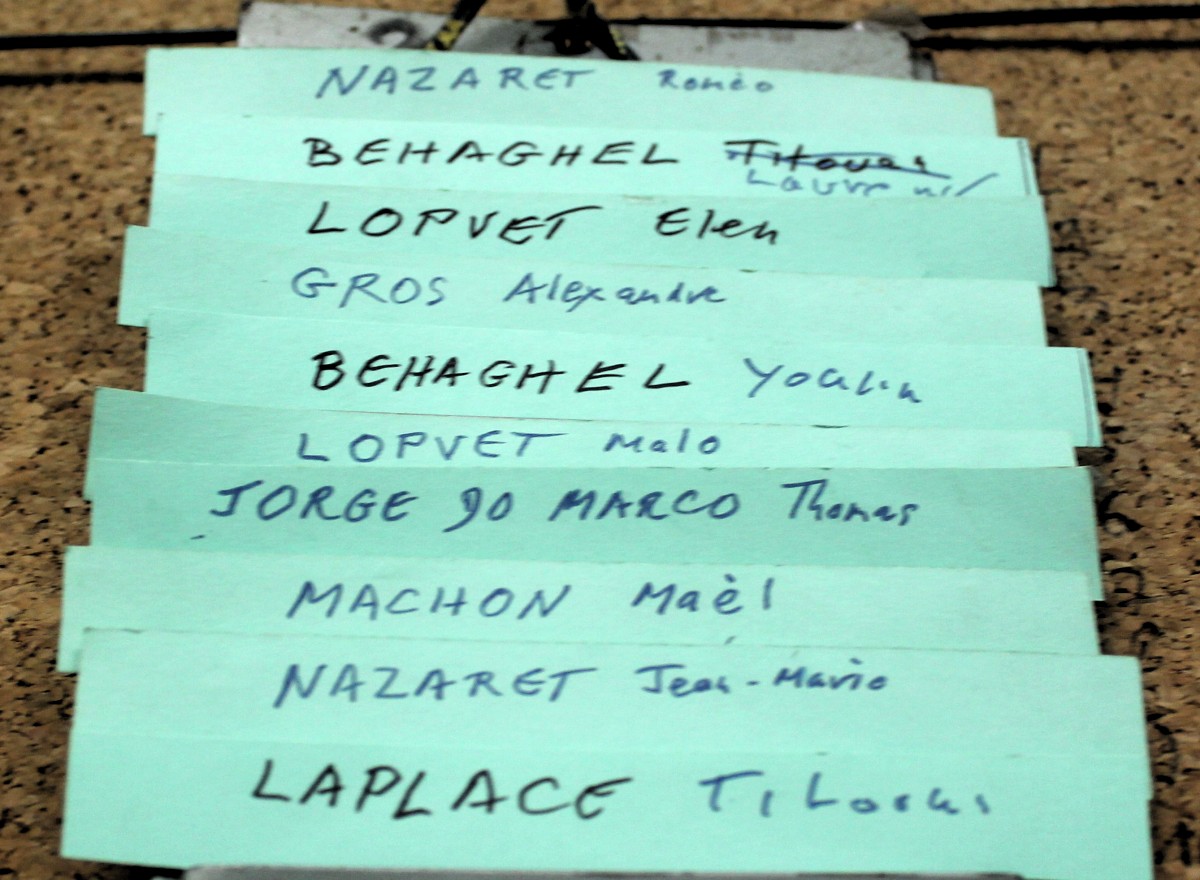 NAZARET Roméo
BEHAGHEL
LOPVET Elen
GROS Alexandre
BEHAGHEL Youlin
LOPVET Malo
JORGE DO MARCO Thomas
MACHON Maèl
NAZARET Jean-Marie
LAPLACE